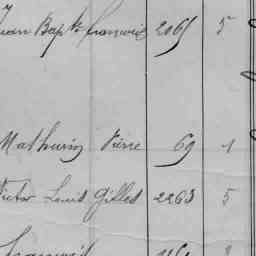 Jean Bapte francois 2065 5
Mathurin Pierre 69 1
Victor Louis Gilles 2263 5
francois